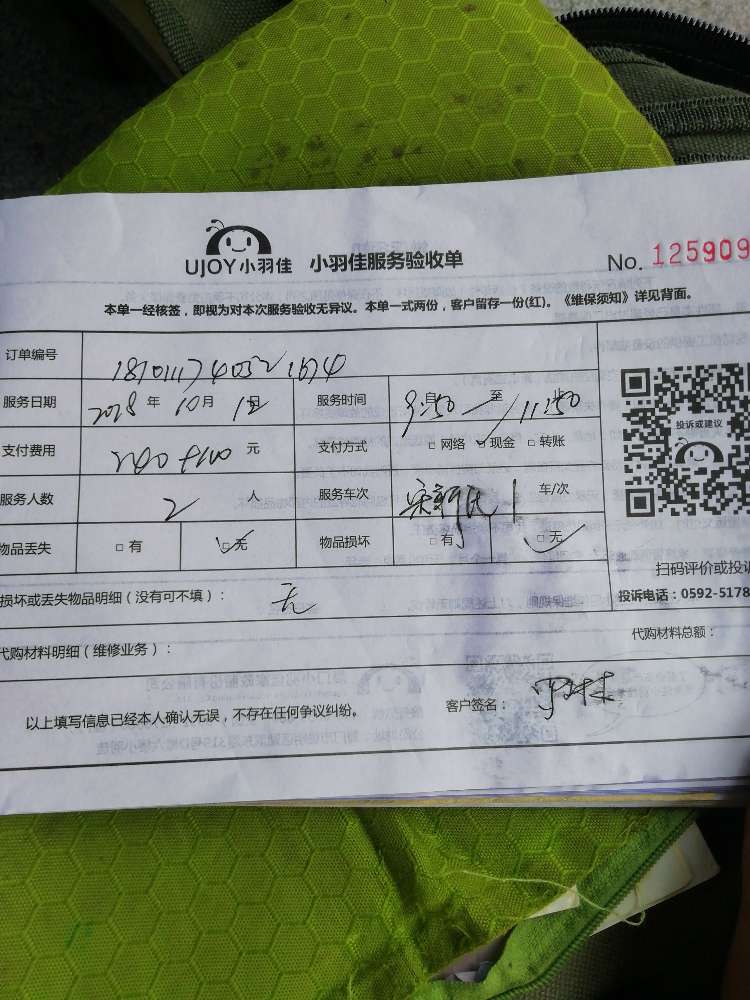 UJOY小羽佳 小羽佳服务验收单 No. 125909
本单一经核签，即视为对本次服务验收无异议。本单一式两份，客户留存一份(红)。《维保须知》详见背面。
订单编号
服务日期 2018 年 10 月 12 日 服务时间 9:50 自 至 11:50
支付费用 元 支付方式 □ 网络 ✓ 现金 □ 转账
服务人数 2 人 服务车次 1 车/次
物品丢失 □ 有 ☑ 无 物品损坏 □ 有 ☑ 无
投诉或建议
扫码评价或投诉
投诉电话：0592-5178
损坏或丢失物品明细（没有可不填）： 无
代购材料明细（维修业务）： 代购材料总额：
以上填写信息已经本人确认无误，不存在任何争议纠纷。 客户签名：